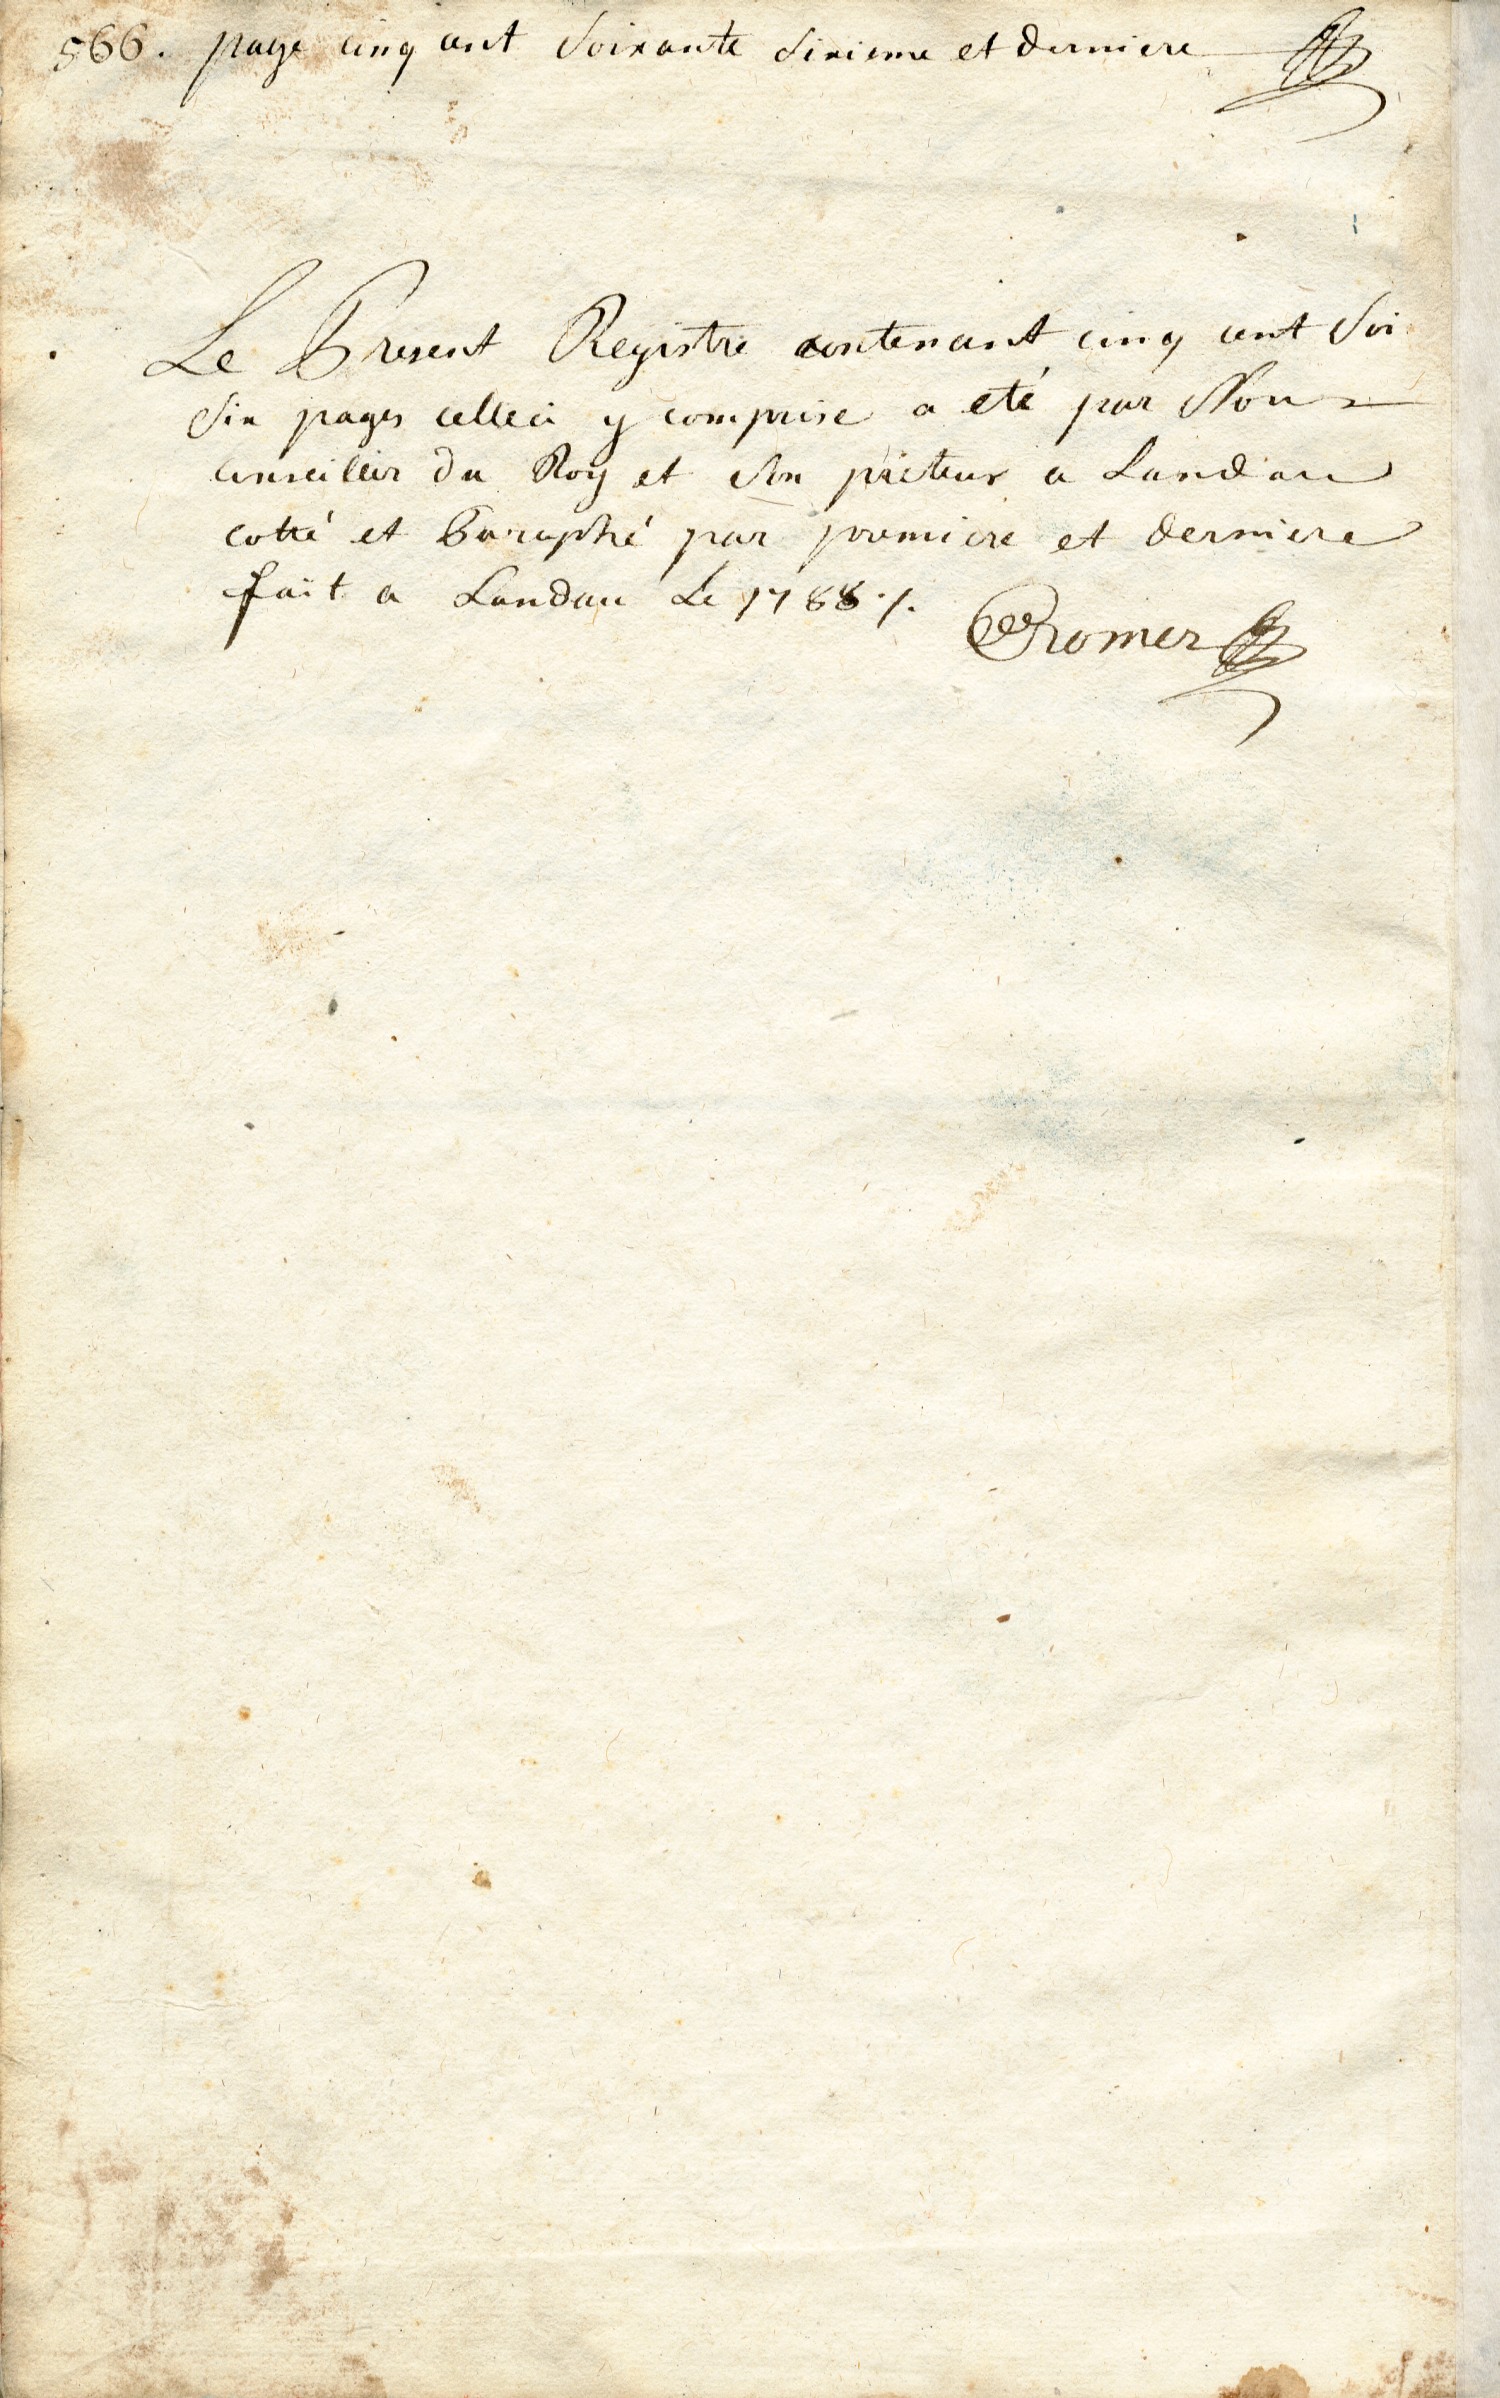 566. page cinq cent Soixante Sixieme et derniere
Le Present Registre contenant cinq cent Soi
Six pages celleci y comprise a eté par Nous
Conseiller du Roy et Son préteur a Landau
cotté et Paraphé par premiere et derniere
fait a Landau Le 1788 ./.
Romer